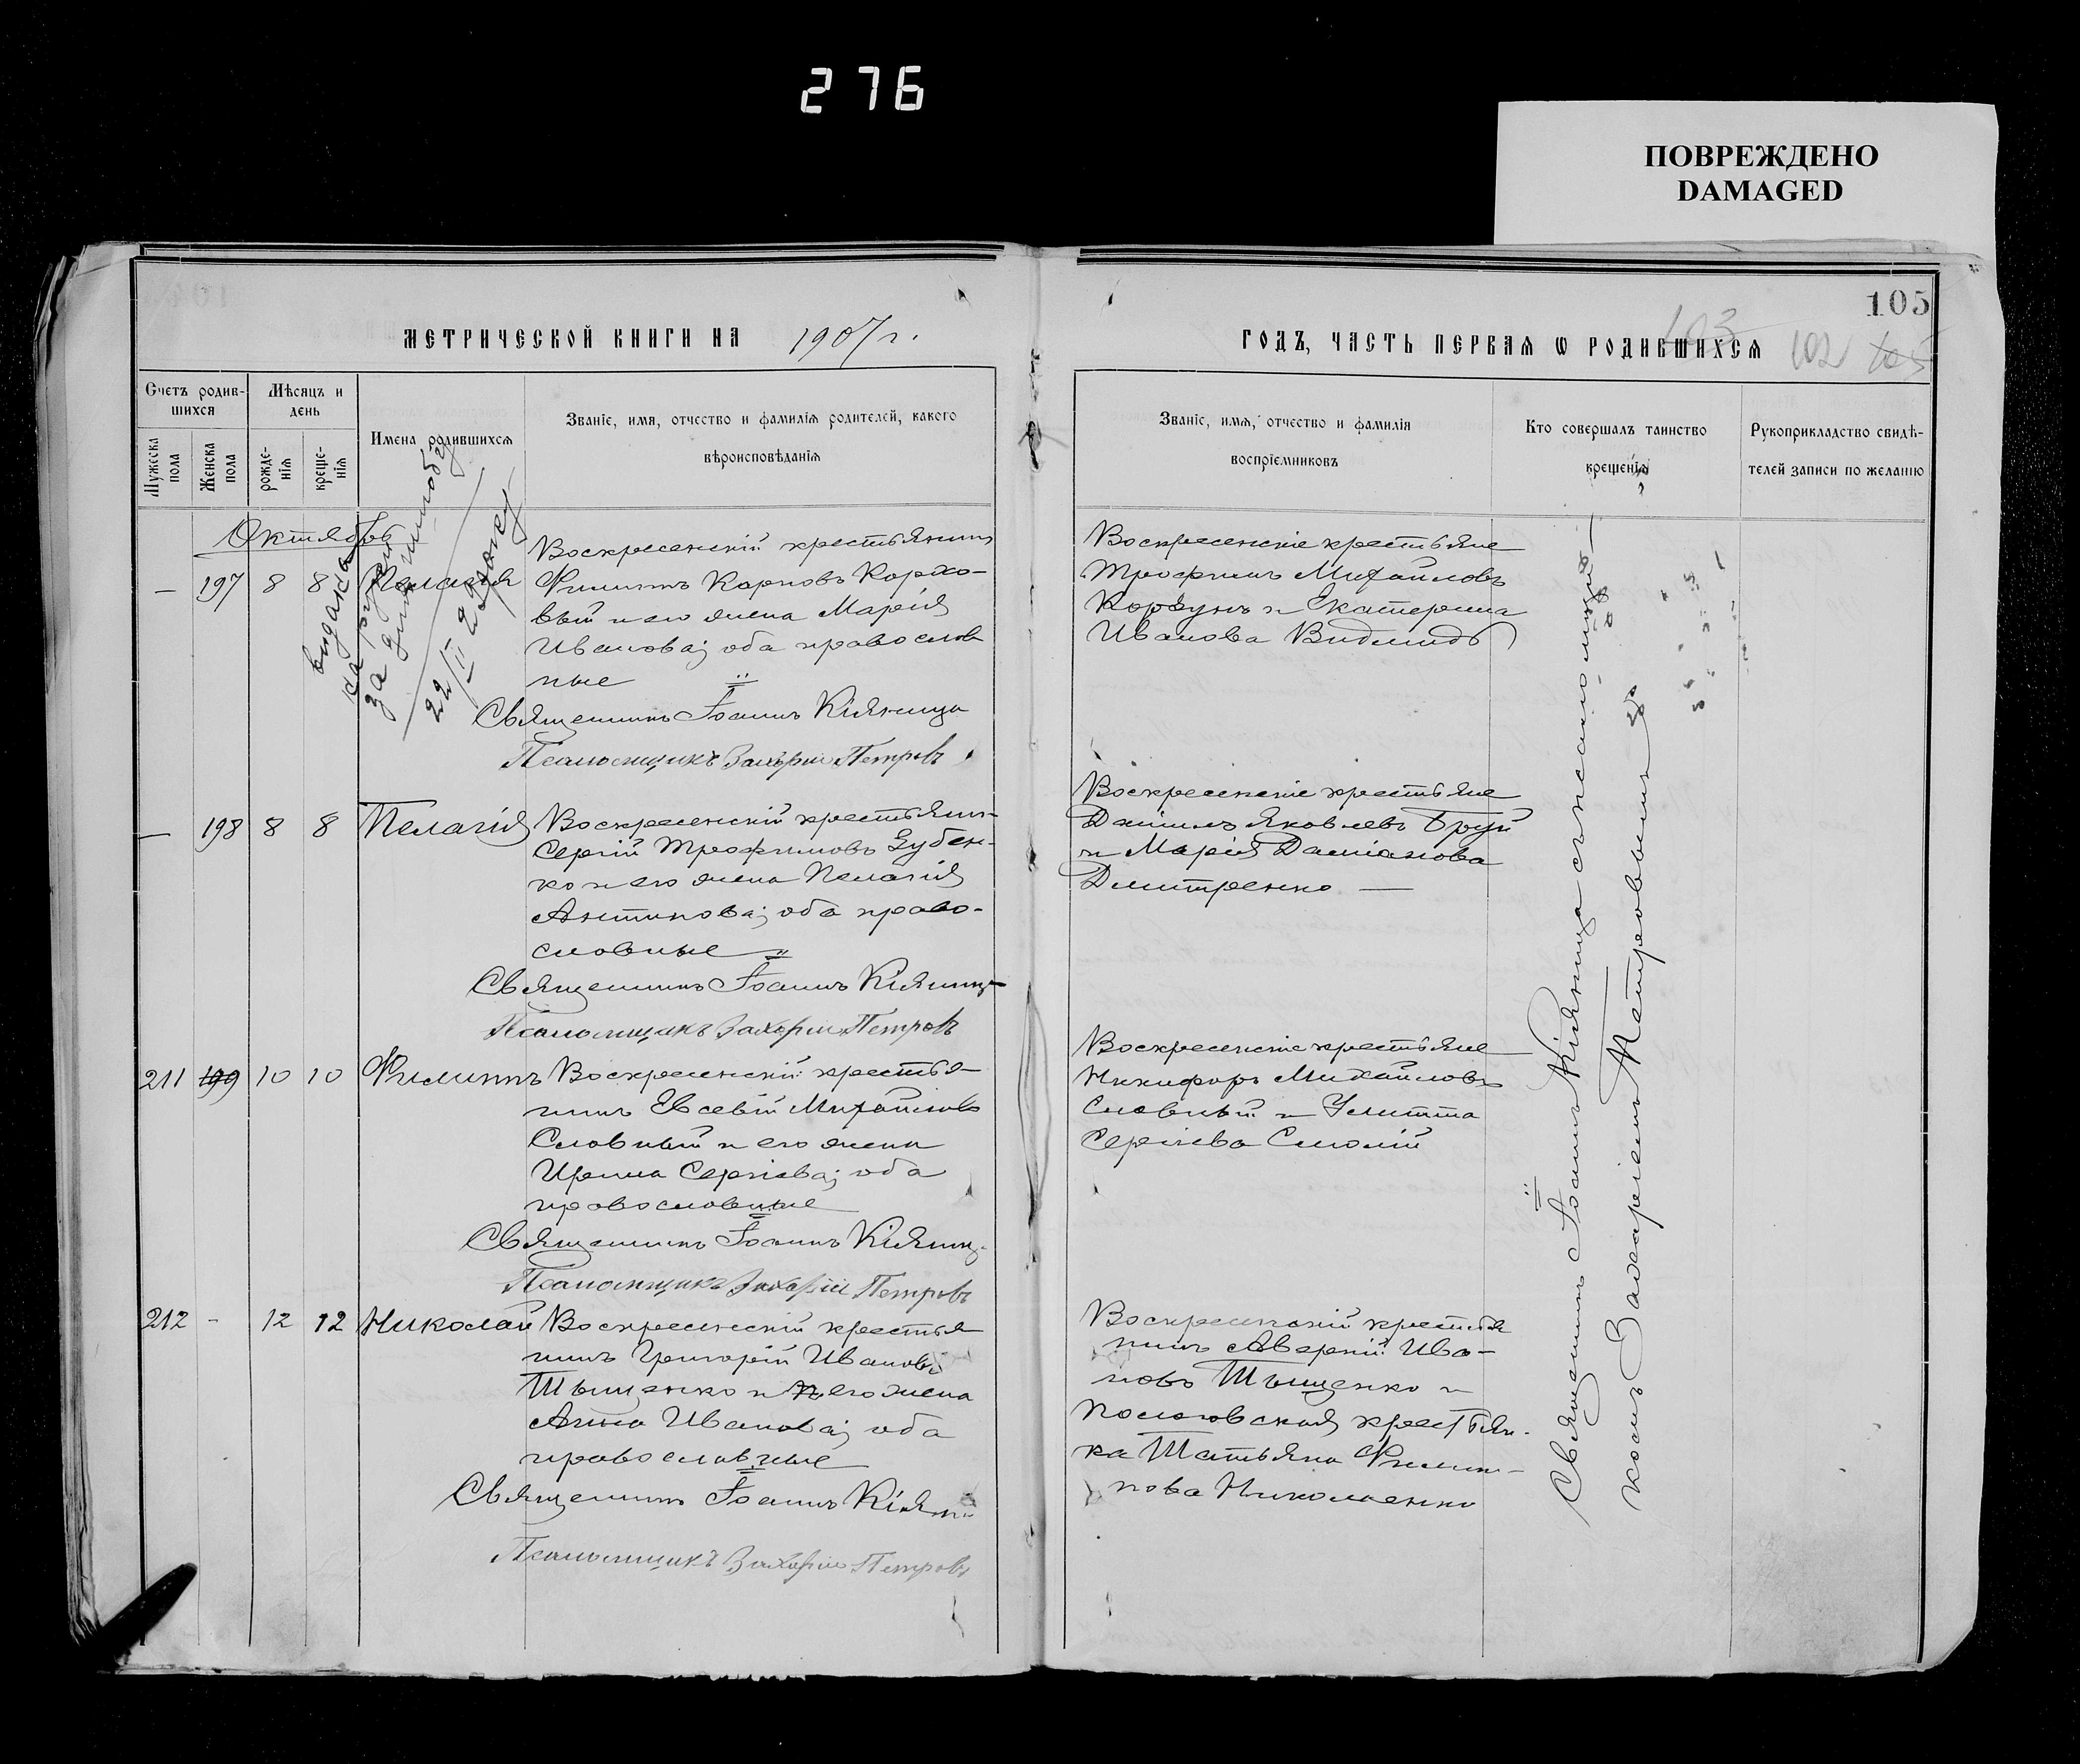 276
ПОВРЕЖДЕНО
DAMAGED
105
МЕТРИЧЕСКОЙ КНИГИ НА 1907 г.
ГОДЪ, ЧАСТЬ ПЕРВАЯ Ѡ РОДИВШИХСЯ 103 102 105
Счетъ родив-
шихся
Мужеска пола
Женска пола
Мѣсяцъ и
день
рожде-
нія
креще-
нія
Имена родившихся
Званіе, имя, отчество и фамилія родителей, какого
вѣроисповѣданія
Званіе, имя, отчество и фамилія
воспріемниковъ
Кто совершалъ таинство
крещенія
Рукоприкладство свидѣ-
телей записи по желанію
Октябрь
— 197 8 8 Пелагія
Воскресенскій крестьянинъ
Филиппъ Карповъ Коржо-
вый и его жена Марія
Иванова; оба православ
ные
Священникъ Іоаннъ Кіяница
Псаломщикъ Захарій Петровъ
22/II 29
Воскресенскіе крестьяне
Трофимъ Михайловъ
Корзунъ и Екатерина
Иванова
— 198 8 8 Пелагія
Воскресенскій крестьянин-
Сергій Трофимовъ Зубен-
ко и его жена Пелагія
Антипова; оба право-
славные
Священникъ Іоаннъ Кіяниц-
Псаломщикъ Захарій Петровъ
Воскресенскіе крестьяне
Даніилъ Яковлевъ Бруй
и Марія Даміанова
Дмитренко —
211 199 10 10 Филиппъ
Воскресенскій крестья-
нинъ Евсевій Михайловъ
Славный и его жена
Ирина Сергіева; оба
православные
Священникъ Іоаннъ Кіяниц-
Псаломщикъ Захарій Петровъ
Воскресенскіе крестьяне
Никифоръ Михайловъ
Славный и Улитта
Сергіева
212 - 12 12 Николай
Воскресенскій крестья
нинъ Григорій Ивановъ
Тыщенко и его жена
Анна Иванова; оба
православные
Священникъ Іоаннъ Кіян
Псаломщикъ Захарій Петровъ
Воскресенскій крестья
нинъ Аверкій Ива-
новъ Тыщенко и
Пологовская крестьян-
ка Татьяна Филип-
пова Николаенко
Священникъ Іоаннъ Кіяница съ псаломщи-
комъ Захаріемъ Петровымъ